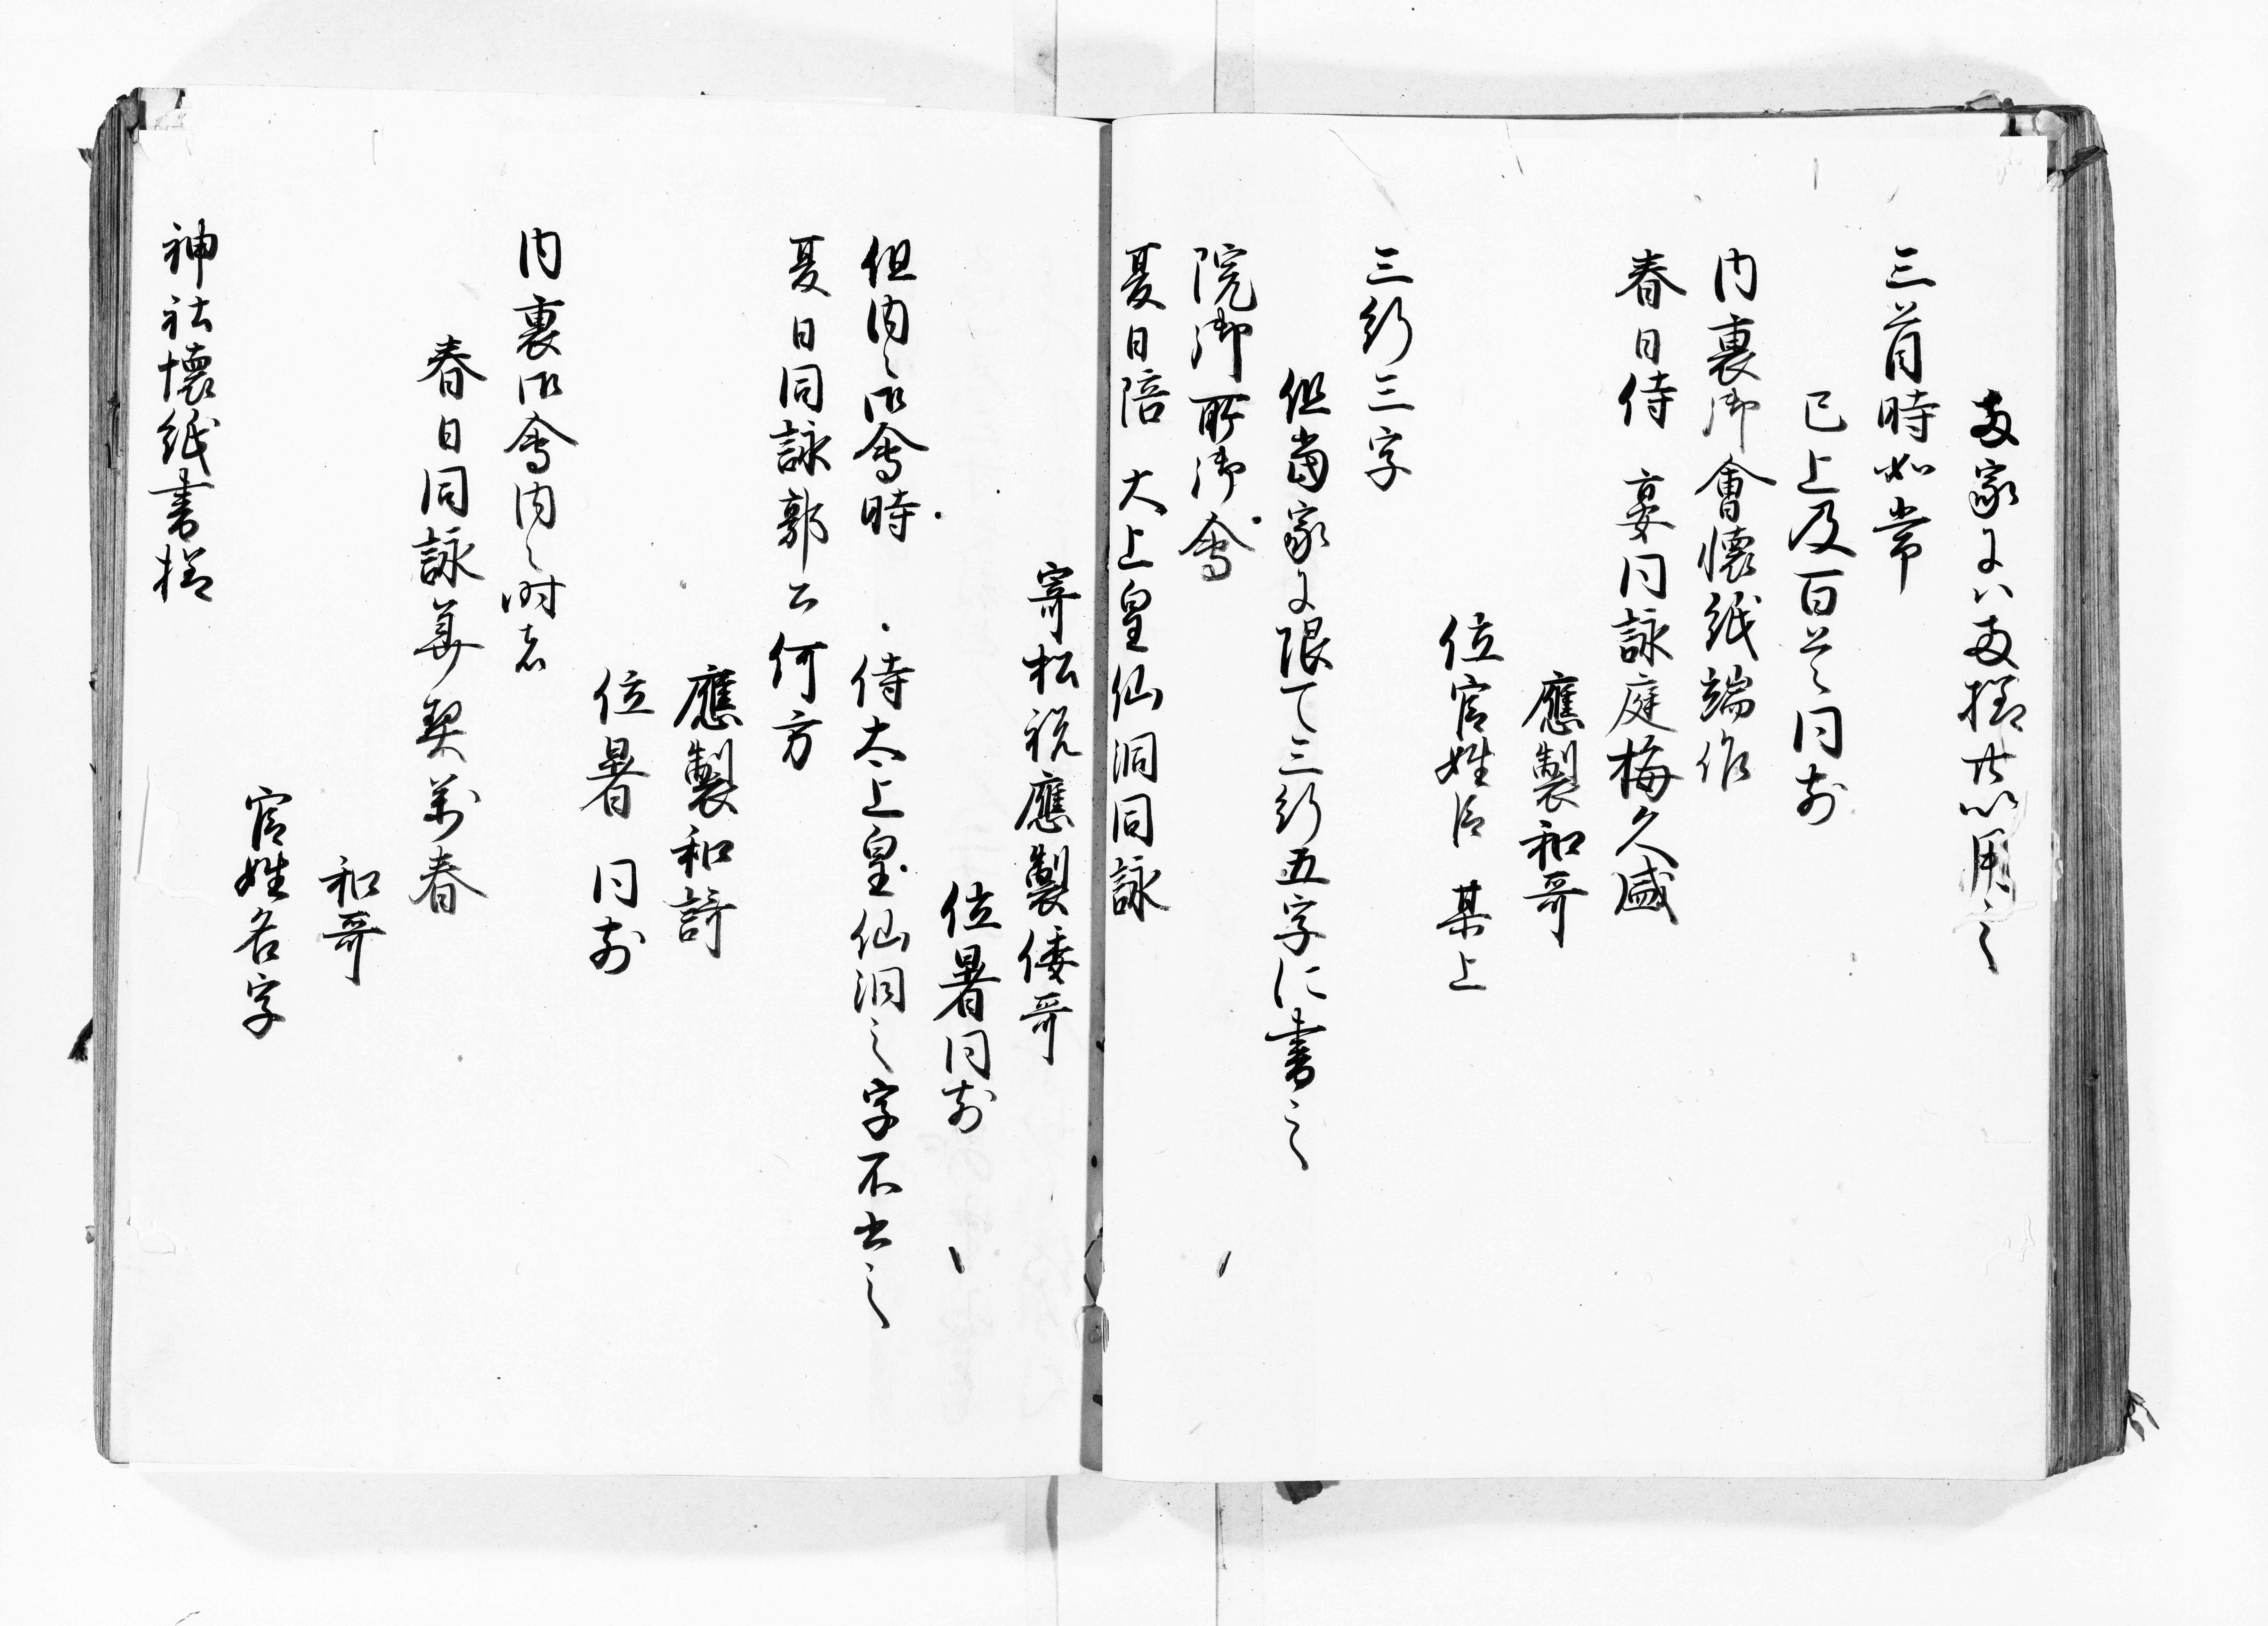 両家にハ両様共以用之
三首時如常
已上及百首同前
内裏御會懐紙端作
春日侍　宴同詠庭梅久盛
應製和哥
位官姓臣　某上
三行三字
但當家に限て三行五字に書之
院御所御會
夏日陪　太上皇仙洞同詠
寄松祝應製倭哥
位署同前
但内々御會時　侍太上皇仙洞之字不書之
夏日同詠郭公何方
應製和謌
位署　同前
内裏御會内々時者
春日同詠華契萬春
和哥
官姓名字
神社懐紙書様